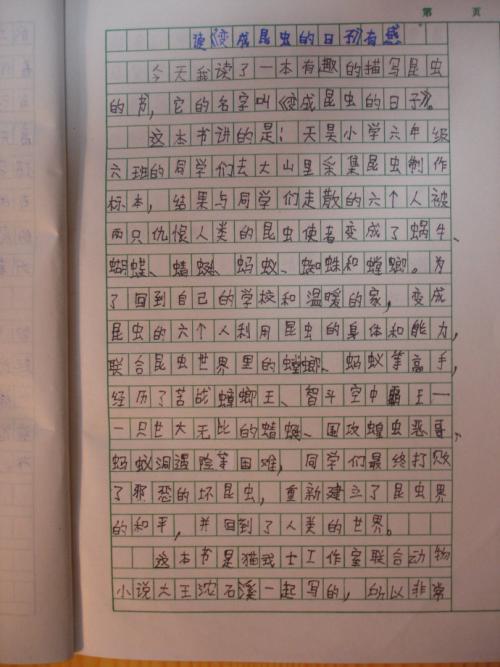 第 页
读《变成昆虫的日子》有感
今天我读了一本有趣的描写昆虫
的书，它的名字叫《变成昆虫的日子》。
这本书讲的是：天昊小学六年级
六班的同学们去大山里采集昆虫制作
标本，结果与同学们走散的六个人被
两只仇恨人类的昆虫使者变成了蜗牛、
蝴蝶、蜻蜓、蚂蚁、蜘蛛和螳螂。为
了回到自己的学校和温暖的家，变成
昆虫的六个人利用昆虫的身体和能力，
联合昆虫世界里的螳螂、蚂蚁等高手，
经历了苦战蟑螂王、智斗空中霸王一
一只世大无比的蜻蜓、围攻蝗虫恶
蚂蚁洞遇险等困难，同学们最终打败
了邪恶的坏昆虫，重新建立了昆虫界
的和平，并回到了人类的世界。
这本书是猫武士工作室联合动物
小说大王沈石溪一起写的，所以非常